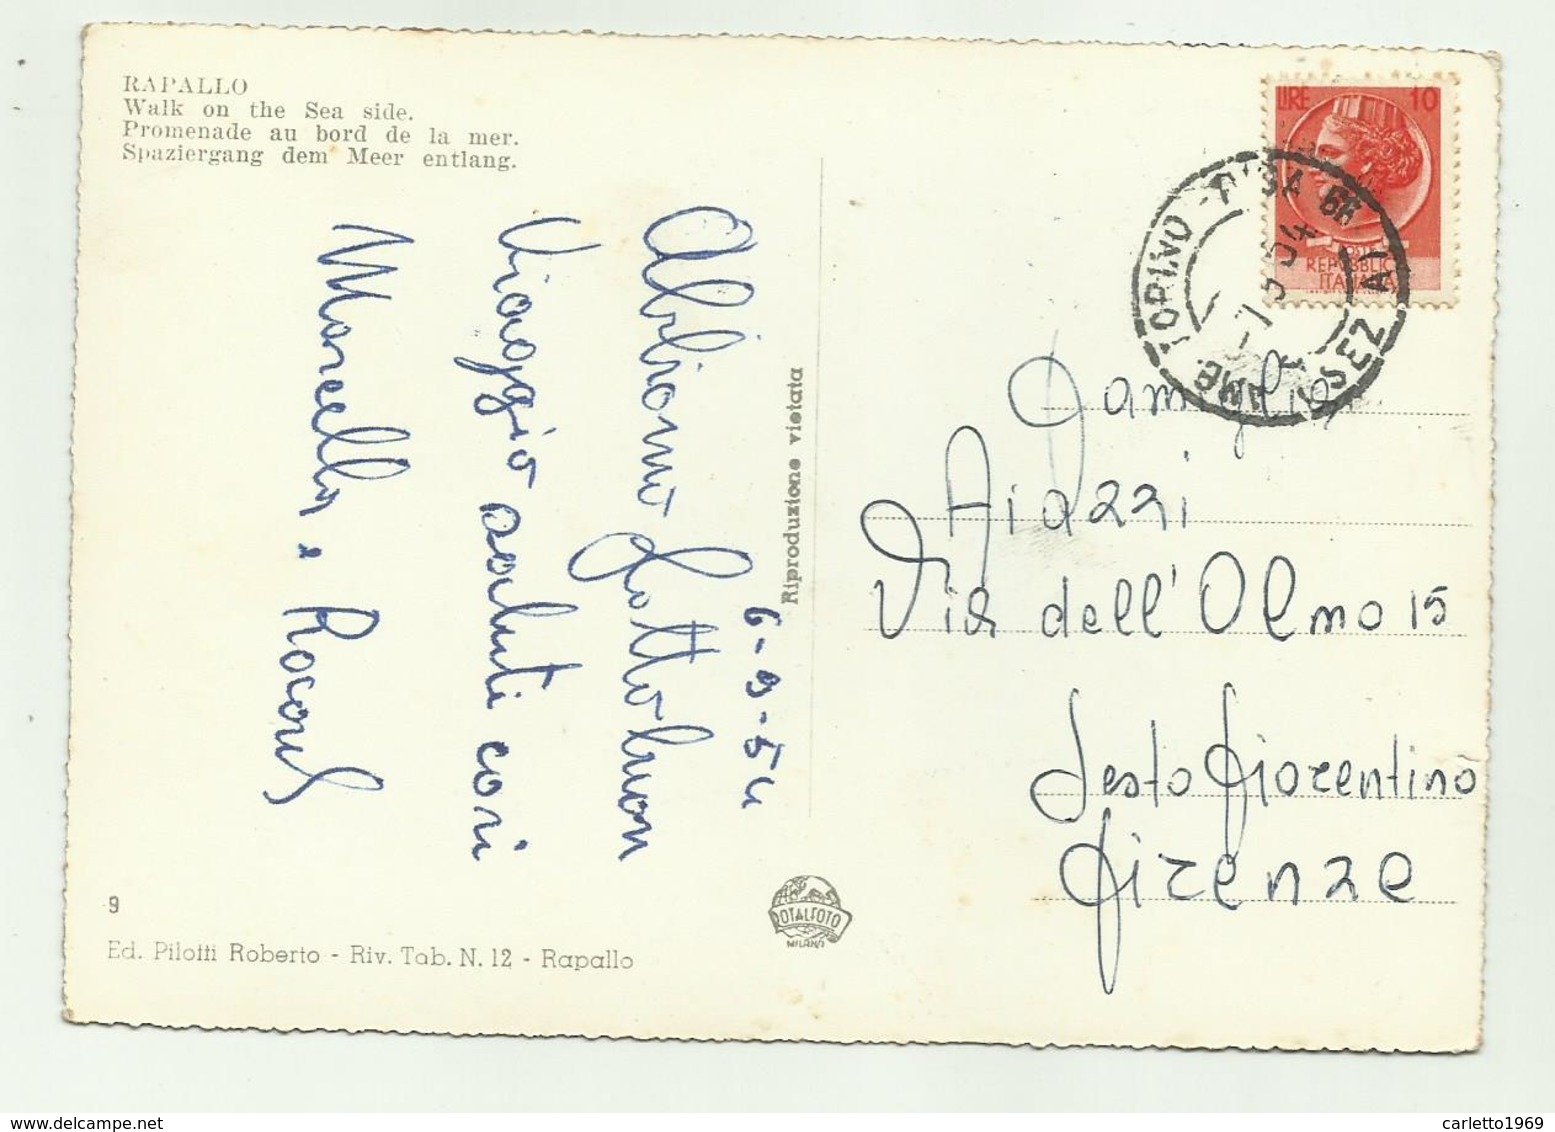 RAPALLO
Walk on the Sea side.
Promenade au bord de la mer.
Spaziergang dem Meer entlang.
6-9-54
Abbiamo fatto buon
Viaggio saluti cari
Marcella e
Riproduzione vietata
LIRE 10
REPUBBLICA
ITALIANA
AMB. TORINO - PISA 66
7 9 54
Famiglia
Aiazzi
Via dell'Olmo 15
Sesto Fiorentino
Firenze
9
ROTALFOTO
MILANO
Ed. Pilotti Roberto - Riv. Tab. N. 12 - Rapallo
carletto1969